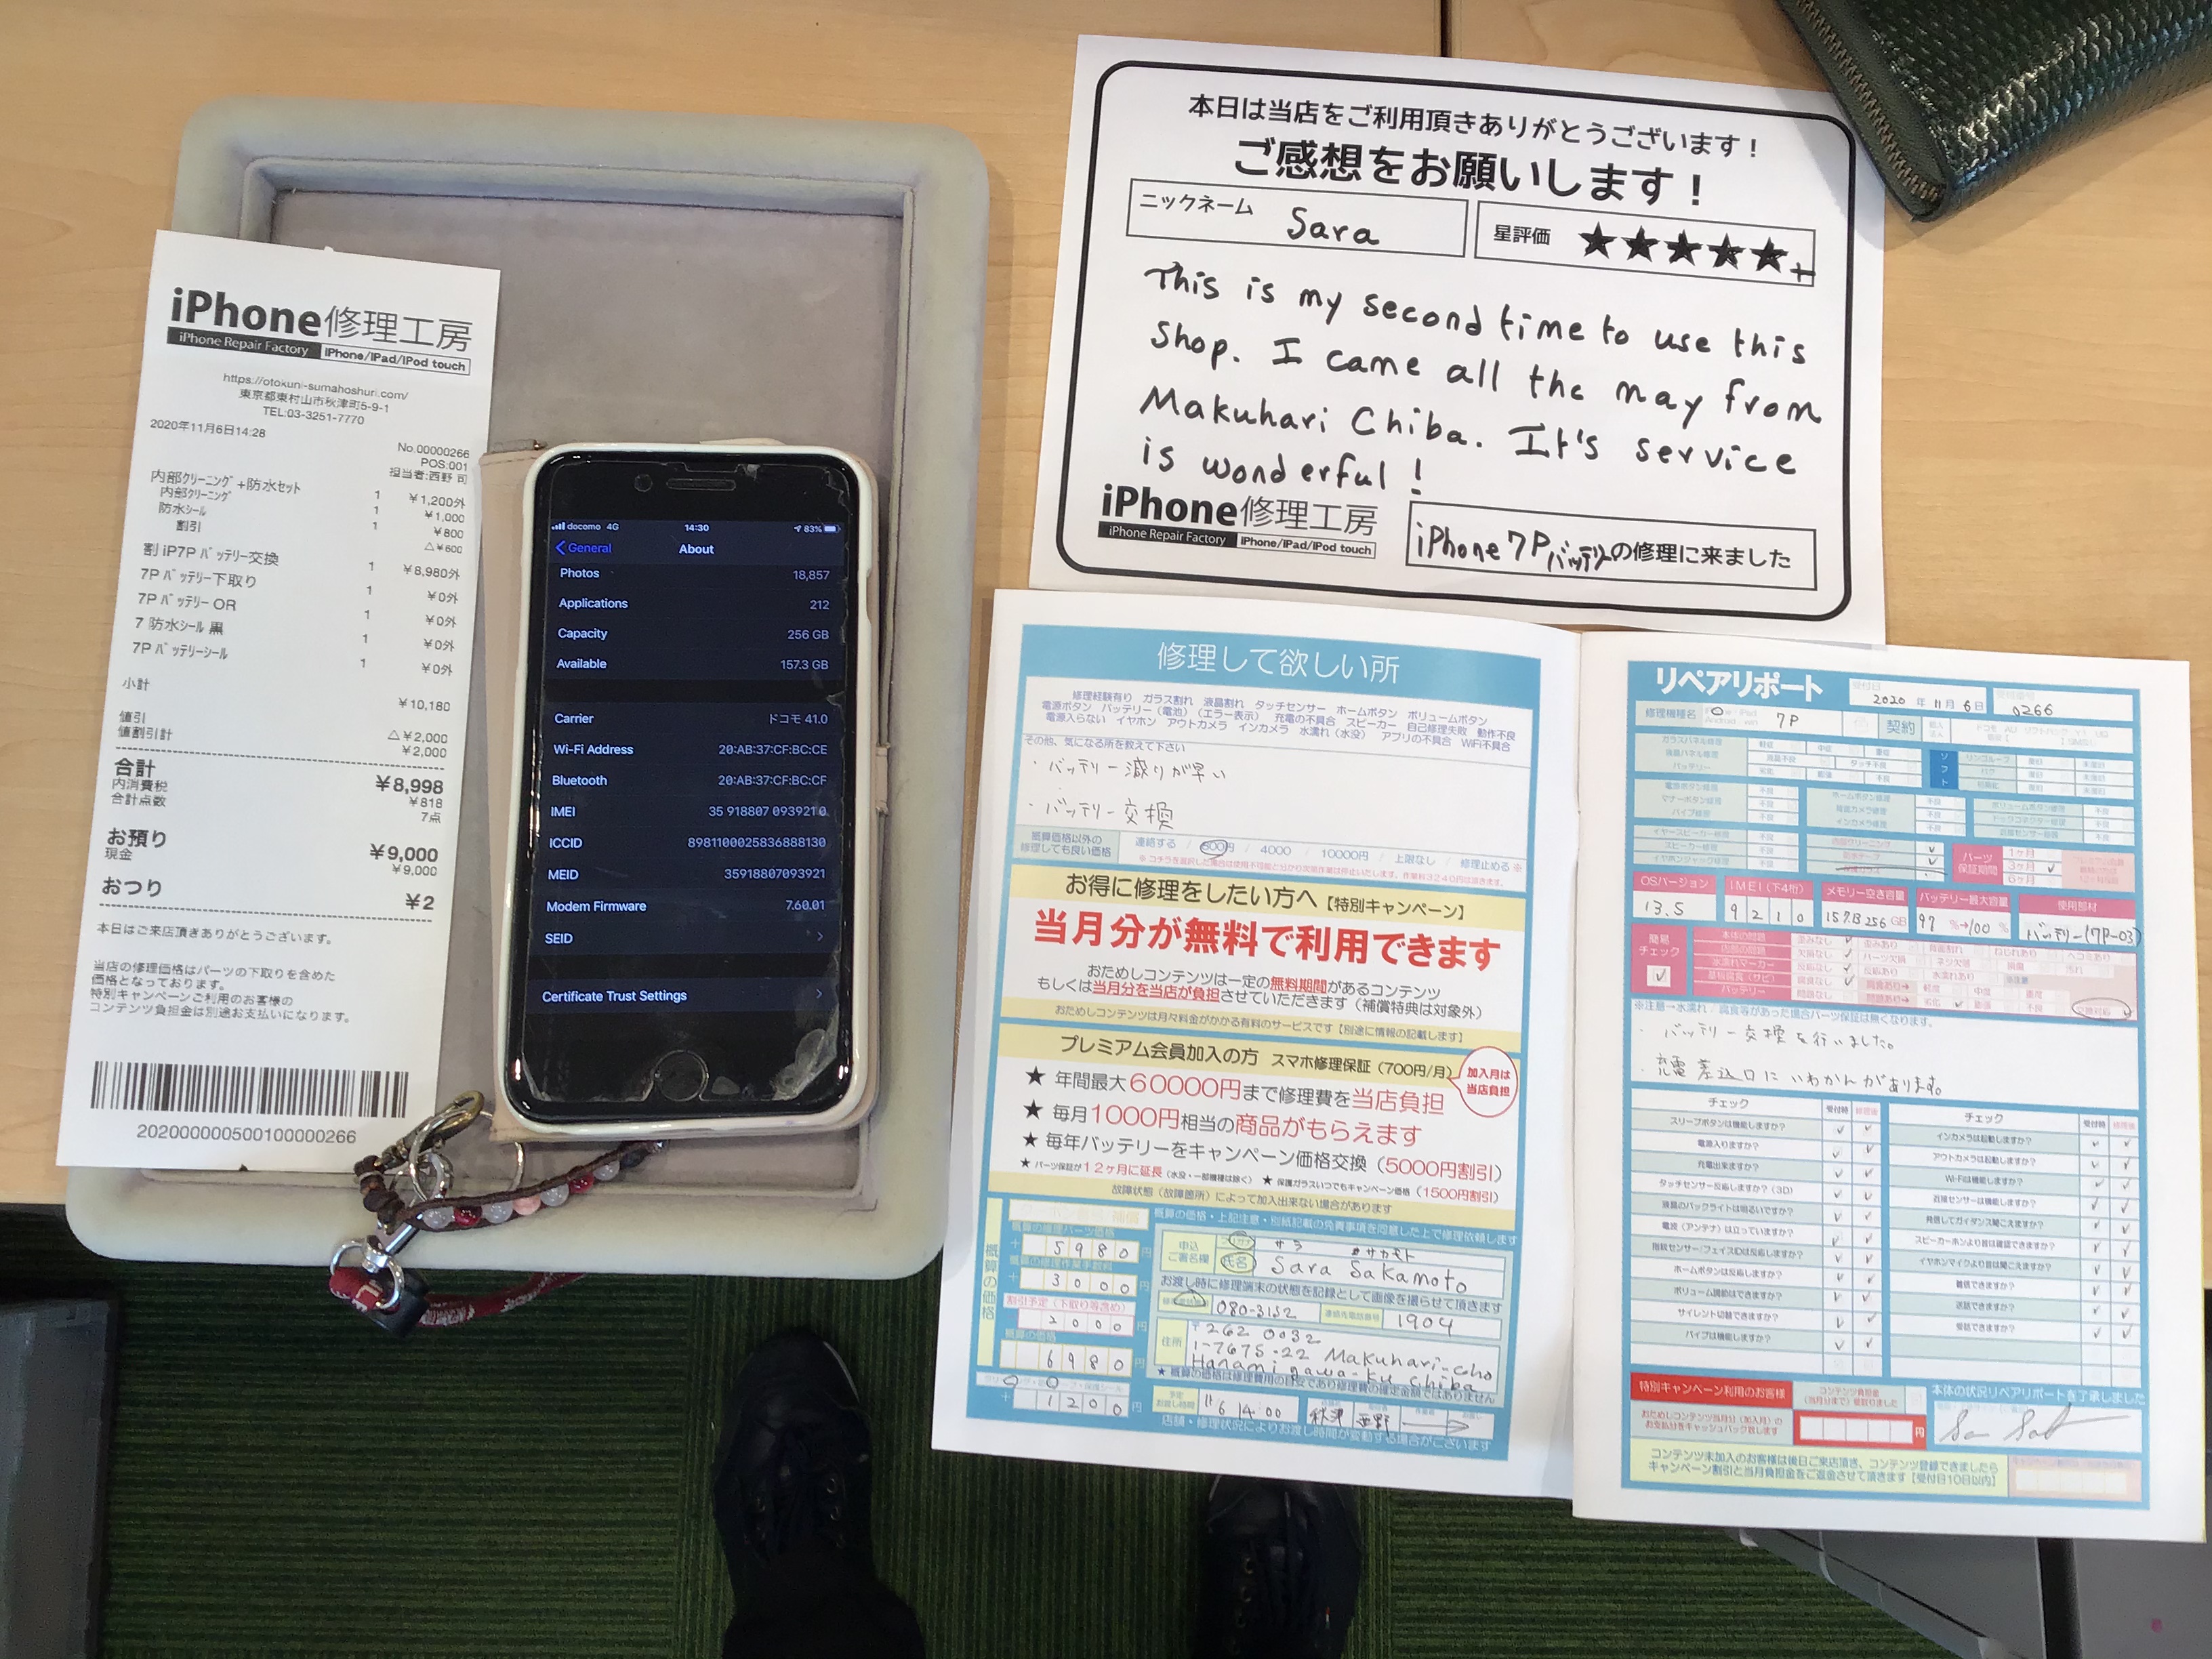 iPhone修理工房
iPhone Repair Factory
iPhone/iPad/iPod touch
https://otokuni-sumahoshuri.com/
東京都東村山市秋津町5-9-1
TEL:03-3251-7770
2020年11月6日14:28
No.00000266
POS:001
担当者:西野 司
内部クリーニング+防水セット 1 ¥1,200外
内部クリーニング 1 ¥1,000
防水シール 1 ¥800
割引 △¥600
割 iP7P バッテリー交換 1 ¥8,980外
7P バッテリー下取り 1 ¥0外
7P バッテリー OR 1 ¥0外
7 防水シール 黒 1 ¥0外
7P バッテリーシール 1 ¥0外
小計 ¥10,180
値引 △¥2,000
値割引計 ¥2,000
合計 ¥8,998
内消費税 ¥818
合計点数 7点
お預り ¥9,000
現金 ¥9,000
おつり ¥2
本日はご来店頂きありがとうございます。
当店の修理価格はパーツの下取りを含めた
価格となっております。
特別キャンペーンご利用のお客様の
コンテンツ負担金は別途お支払いになります。
2020000000500100000266
docomo 4G 14:30 83%
General About
Photos 18,857
Applications 212
Capacity 256 GB
Available 157.3 GB
Carrier ドコモ 41.0
Wi-Fi Address 20:AB:37:CF:BC:CE
Bluetooth 20:AB:37:CF:BC:CF
IMEI 35 918807 093921 0
ICCID 8981100025836888130
MEID 35918807093921
Modem Firmware 7.60.01
SEID
Certificate Trust Settings
本日は当店をご利用頂きありがとうございます!
ご感想をお願いします!
ニックネーム Sara
星評価 ★★★★★+
This is my second time to use this
shop. I came all the way from
Makuhari Chiba. It's service
is wonderful!
iPhone修理工房
iPhone Repair Factory
iPhone/iPad/iPod touch
iPhone 7Pバッテリーの修理に来ました
修理して欲しい所
修理経験有り ガラス割れ 液晶割れ タッチセンサー ホームボタン ボリュームボタン
電源ボタン バッテリー(電池)(エラー表示) 充電の不具合 スピーカー 自己修理失敗 動作不良
電源入らない イヤホン アウトカメラ インカメラ 水濡れ(水没) アプリの不具合 WiFi不具合
その他、気になる所を教えて下さい
・バッテリー減りが早い
・バッテリー交換
概算価格以外の
修理しても良い価格
連絡する / 500円 / 4000 / 10000円 / 上限なし / 修理止める ※
お得に修理をしたい方へ【特別キャンペーン】
当月分が無料で利用できます
おためしコンテンツは一定の無料期間があるコンテンツ
もしくは当月分を当店が負担させていただきます(補償特典は対象外)
おためしコンテンツは月々料金がかかる有料のサービスです【別途に情報の記載します】
プレミアム会員加入の方 スマホ修理保証(700円/月)
加入月は
当店負担
★ 年間最大60000円まで修理費を当店負担
★ 毎月1000円相当の商品がもらえます
★ 毎年バッテリーをキャンペーン価格交換(5000円割引)
★ パーツ保証が12ヶ月に延長(水没・一部機種は除く) ★ 保護ガラスいつでもキャンペーン価格(1500円割引)
故障状態(故障箇所)によって加入出来ない場合があります
概算の価格・上記注意・別紙記載の免責事項を同意した上で修理依頼します
概算の価格
概算の修理パーツ価格
+ 5980円
+ 3000円
割引予定(下取り等含め)
2000円
概算の価格
6980円
+ 1200円
申込
ご署名欄
サラ サカモト
氏名 Sara Sakamoto
お渡し時に修理端末の状態を記録として画像を撮らせて頂きます
080-3132
連絡先電話番号 1904
住所 〒262 0032
1-7675-22 Makuhari-cho
Hanamigawa-ku Chiba
★ 概算の価格は修理費用の目安であり修理費の確定金額ではありません
予定
お渡し時間 11/6 14:00
秋津 西野
店舗・修理状況によりお渡し時間が変動する場合がございます
リペアリポート
受付日 2020年11月6日
0266
修理機種名 7P
契約
パーツ
保証期間
1ヶ月
3ヶ月
6ヶ月
OSバージョン 13.5
IMEI(下4桁) 9210
メモリー空き容量 157/256GB
バッテリー最大容量 97%→100%
使用部材 バッテリー(7P-03)
簡易
チェック
※注意→水濡れ/腐食等があった場合パーツ保証は無くなります。
・バッテリー交換を行いました。
・充電差込口にいわかんがあります。
チェック 受付時 修理後
スリープボタンは機能しますか?
電源入りますか?
充電出来ますか?
タッチセンサー反応しますか?(3D)
液晶のバックライトは明るいですか?
電波(アンテナ)は立っていますか?
指紋センサー/フェイスIDは反応しますか?
ホームボタンは反応しますか?
ボリューム調節はできますか?
サイレント切替できますか?
バイブは機能しますか?
チェック 受付時 修理後
インカメラは起動しますか?
アウトカメラは起動しますか?
Wi-Fiは機能しますか?
近接センサーは機能しますか?
発信してガイダンス聞こえますか?
スピーカーホンより音は確認できますか?
イヤホンマイクより音は聞こえますか?
着信できますか?
送話できますか?
受話できますか?
特別キャンペーン利用のお客様
おためしコンテンツ当月分(加入月)の
お支払分をキャッシュバック致します
円
本体の状況リペアリポートを了承しました
コンテンツ未加入のお客様は後日ご来店頂き、コンテンツ登録できましたら
キャンペーン割引と当月負担金をご返金させて頂きます【受付日10日以内】